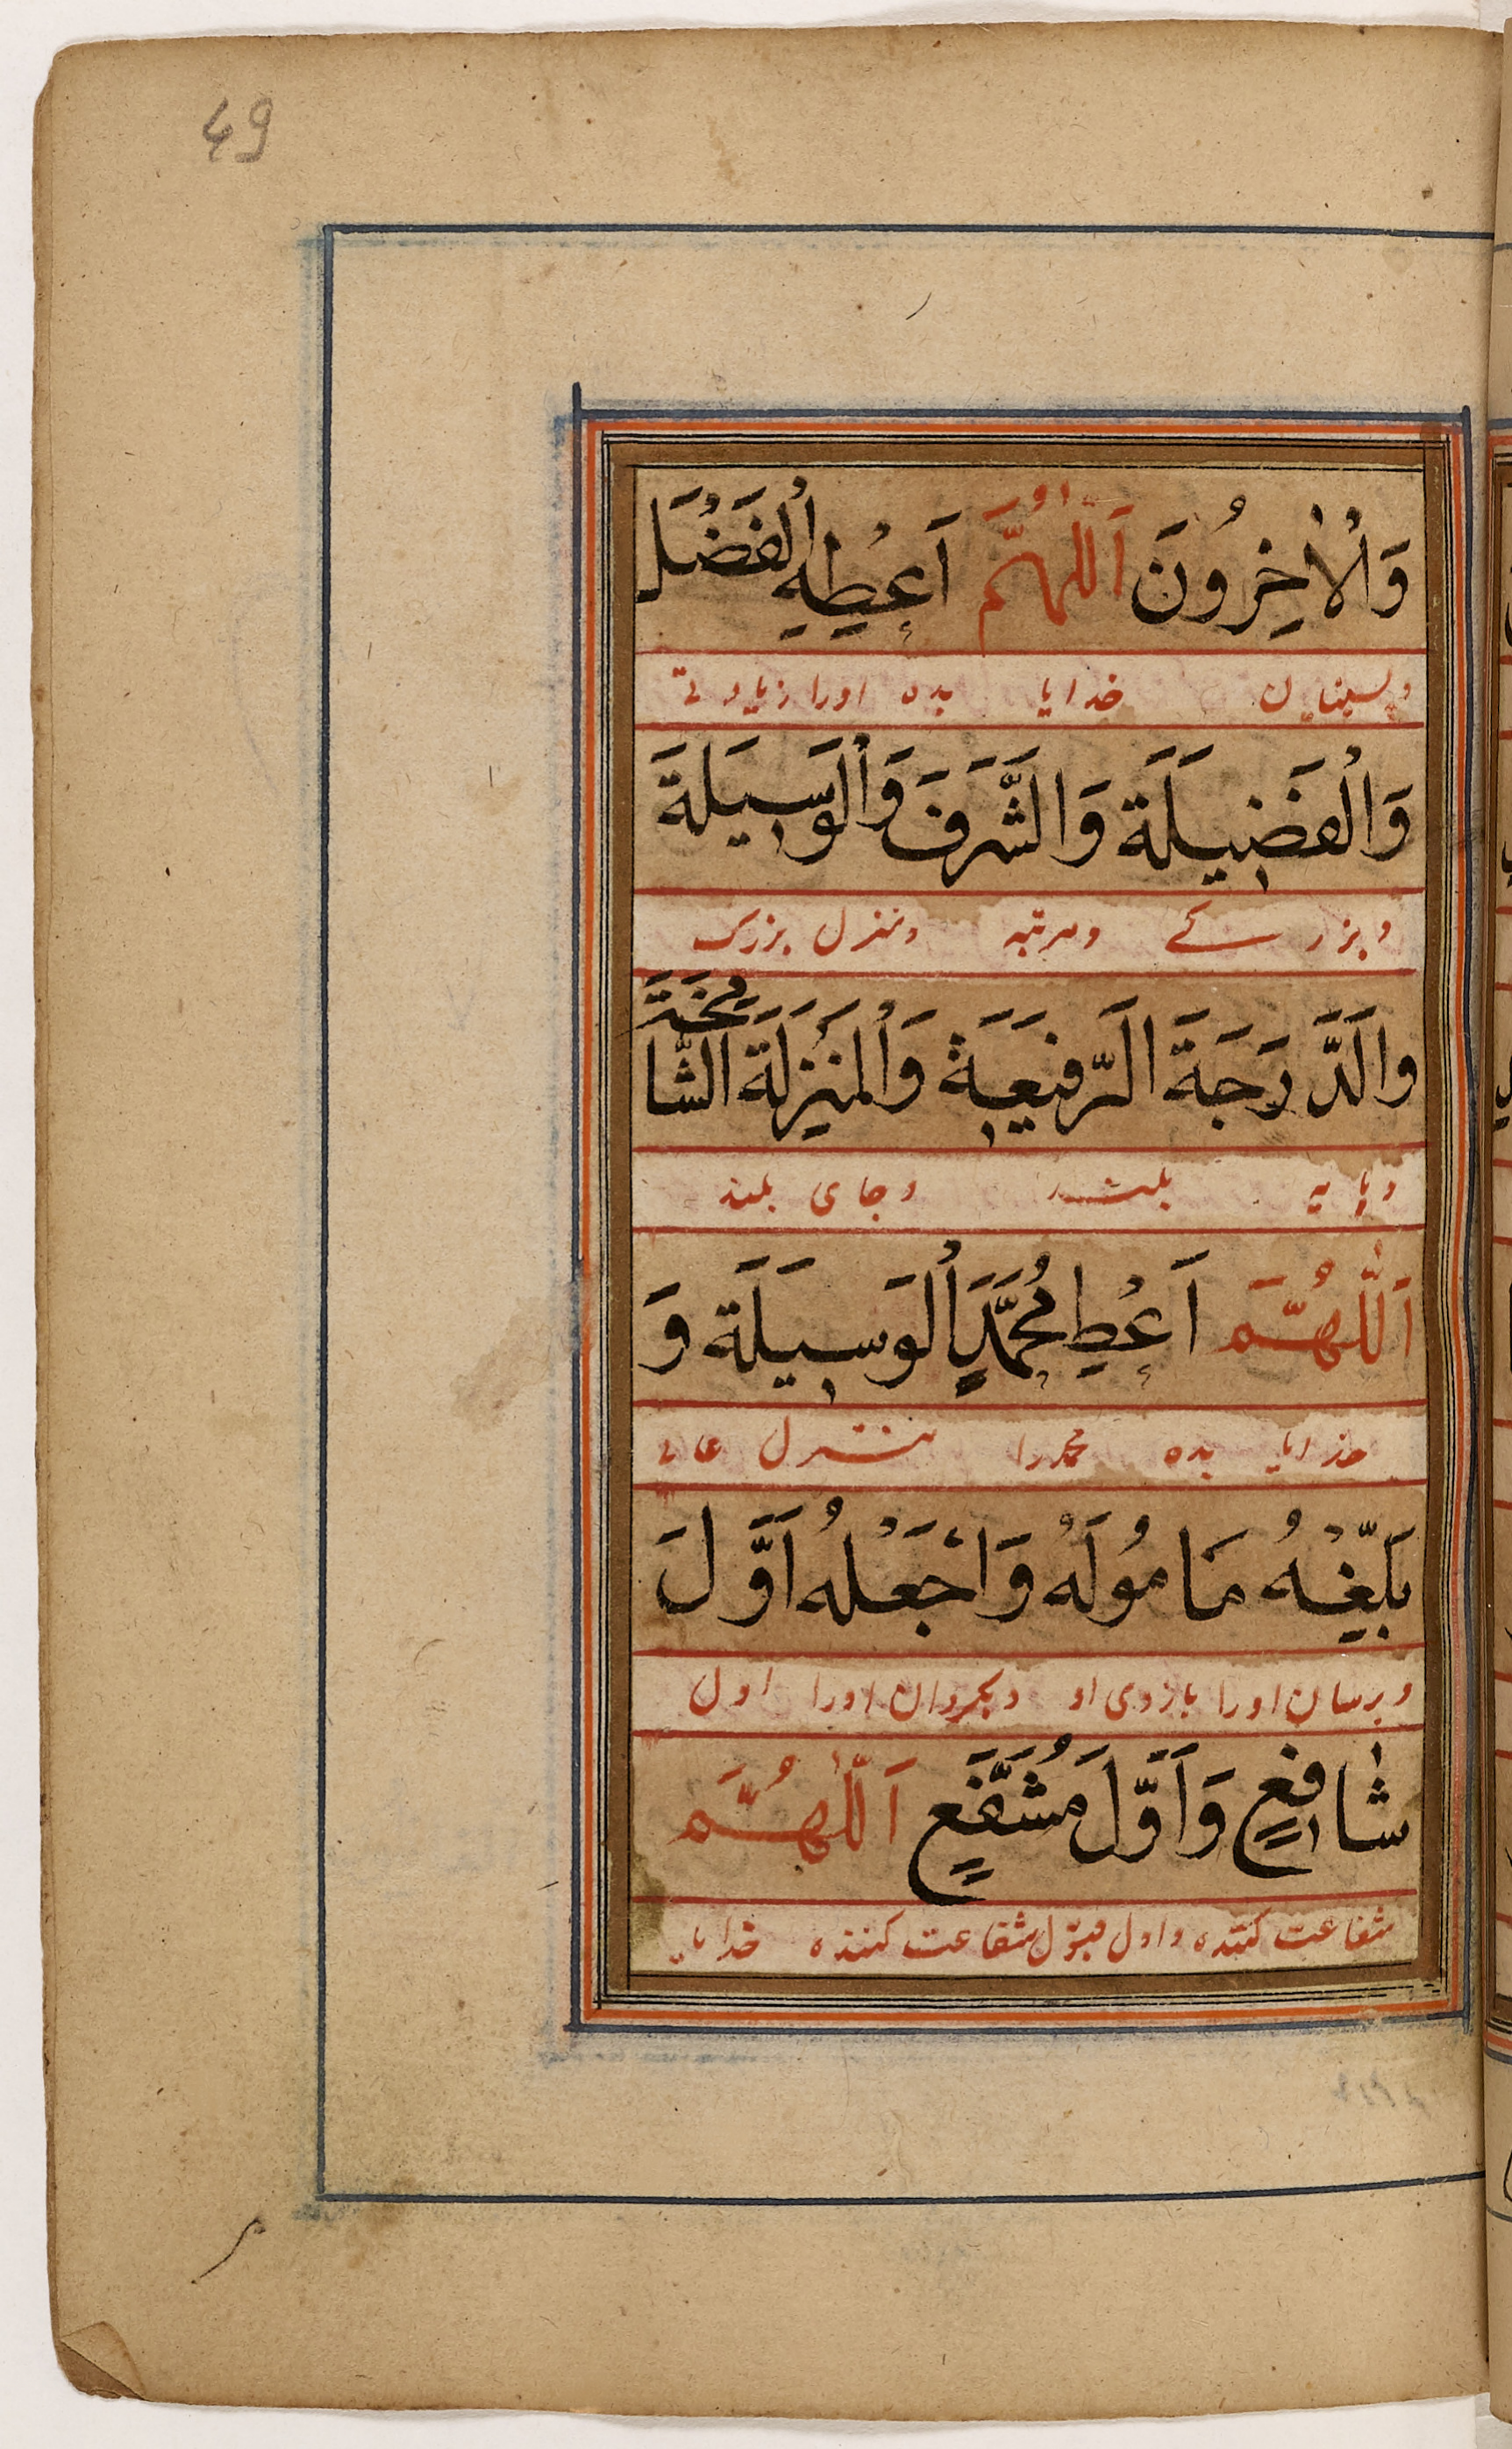 49
وَالْاٰخِرُونَ اَللّٰهُمَّ اَعْطِهِ الْفَضْلَ
وپسینیان خدایا بده اورا زیادتی
وَالْفَضِيلَةَ وَالشَّرَفَ وَالْوَسِيلَةَ
وبزرگے ومرتبه ومنزل بزرک
والدَّرَجَةَ الرَّفِيعَةَ وَالْمَنْزِلَةَ الشَّامِخَةَ
وپایه بلند وجای بلند
اَللّٰهُمَّ اَعْطِ مُحَمَّدٍ الْوَسِيلَةَ وَ
خدایا بده محمدرا منزل عالی
بَلِّغْهُ مَامُولَهُ وَاجْعَلْهُ اَوَّلَ
وبرسان اورا بارزوی او وبکردان اورا اول
شَافِعٍ وَاَوَّلَ مُشَفَّعٍ اَللّٰهُمَّ
شفاعت کننده واول قبول شفاعت کننده خدایا